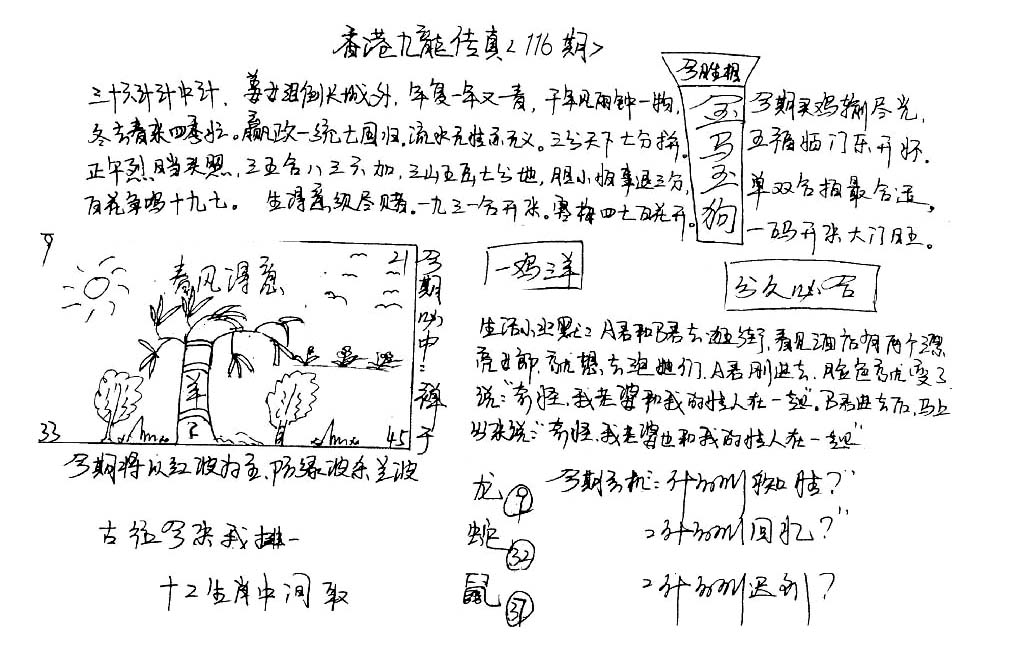 香港九龍传真<116期>
三十六计计中计，姜女泪倒长城外，年复一年又一春，千年见两钟一物，
冬去春来四季忙。嬴政一统七国归。流水无情亦无义。三分天下七分拚。
正午烈日当头照，三五合八三六加，三山五岳七分地，胆小怕事退三分，
百花争鸣十九七。生得意须尽赌。一九三一合开来。寒梅四七百花开。
今期买鸡输尽光，
五福临门乐开怀。
单双合拍最合适。
一码开来大门旺。
金
马
玉
狗
一鸡三羊
分久必合
9
春风得意
21
羊
33
45
今期必中:弹子
今期将以红波为主，防绿波杀兰波
生活小幽默: A君和B君去逛街，看见酒店有两个漂
亮女郎，就想去泡她们，A君刚进去，脸色就变了
说:"奇怪，我老婆和我的情人在一起"。B君进去后，马上
出来说:"奇怪，我老婆也和我的情人在一起"
龙 9
蛇 32
鼠 37
今期玄机:
回忆?"
迟到?
十二生肖中间取